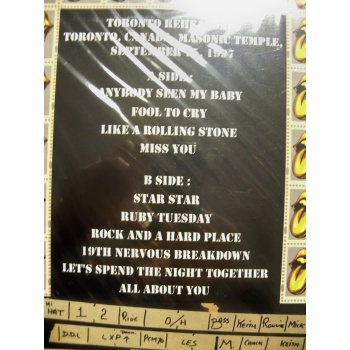 TORONTO REHE
TORONTO, CANADA, MASONIC TEMPLE,
SEPTEMBER 1997
A SIDE:
ANYBODY SEEN MY BABY
FOOL TO CRY
LIKE A ROLLING STONE
MISS YOU
B SIDE :
STAR STAR
RUBY TUESDAY
ROCK AND A HARD PLACE
19TH NERVOUS BREAKDOWN
LET'S SPEND THE NIGHT TOGETHER
ALL ABOUT YOU
HI HAT 1 2 RIDE O/H BASS KEITH RONNIE MICK
DDL LXP PCM70 LES M. CHUCK KEITH